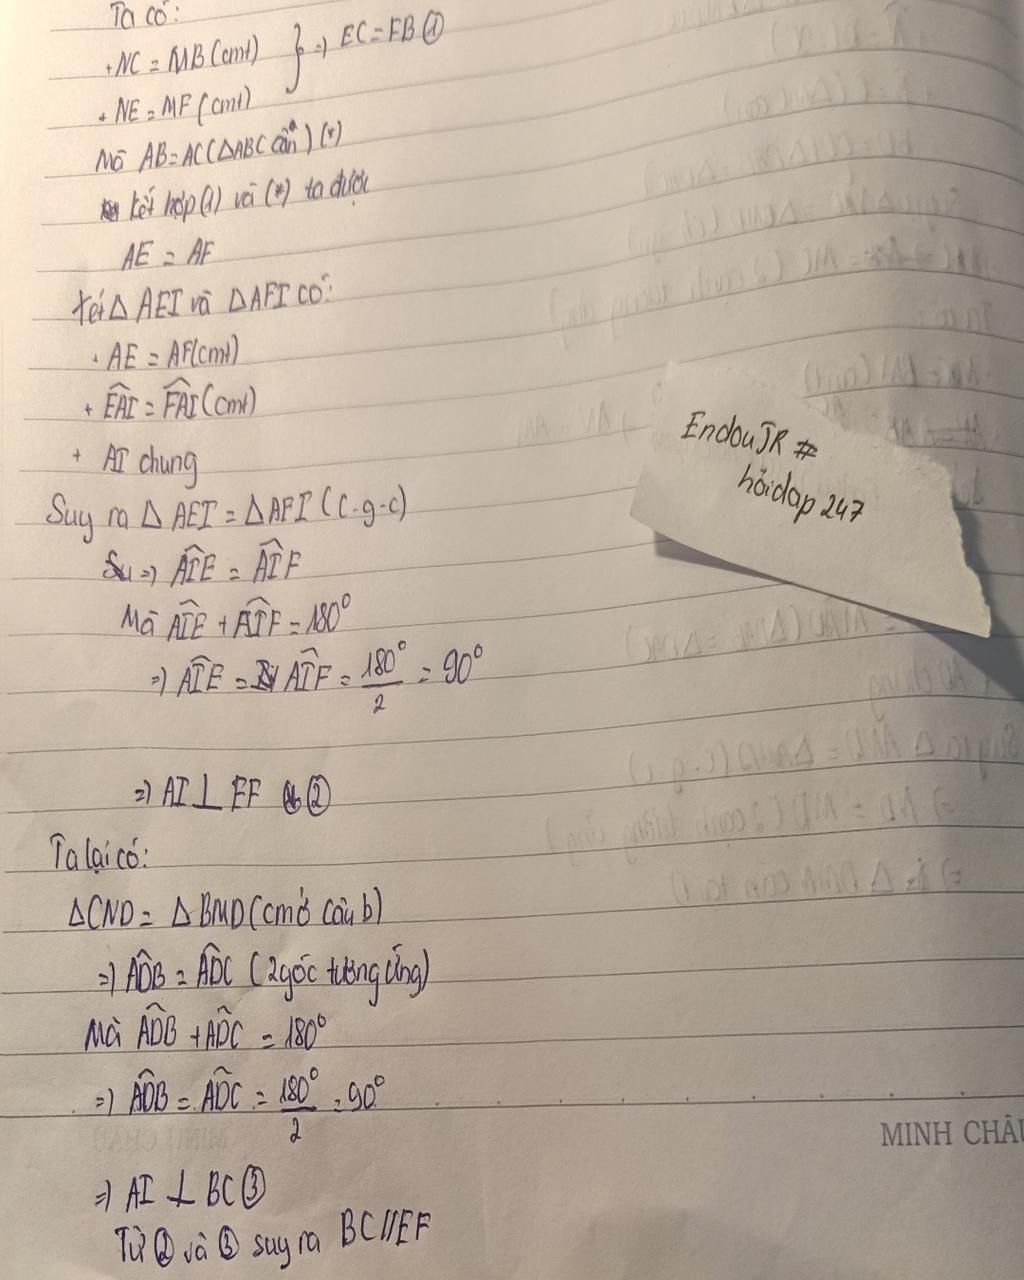 Ta có:
+NC = MB (cmt) } => EC = FB ①
+ NE = MF (cmt)
Mà AB = AC (△ABC cân) (*)
kết hợp (1) và (*) ta được
AE = AF
Xét △ AEI và △AFI có:
+ AE = AF (cmt)
+ EAI = FAI (cmt)
+ AI chung
Suy ra △ AEI = △AFI (c-g-c)
=> AIE = AIF
Mà AIE + AIF = 180°
=> AIE = AIF = 180°/2 = 90°
=> AI ⊥ EF ②
Ta lại có:
△CND = △BMD (cm ở câu b)
=> ADB = ADC (2 góc tương ứng)
Mà ADB + ADC = 180°
=> ADB = ADC = 180°/2 = 90°
=> AI ⊥ BC ③
Từ ② và ③ suy ra BC // EF
EndouJR #
hỏidap 247
MINH CHÂU